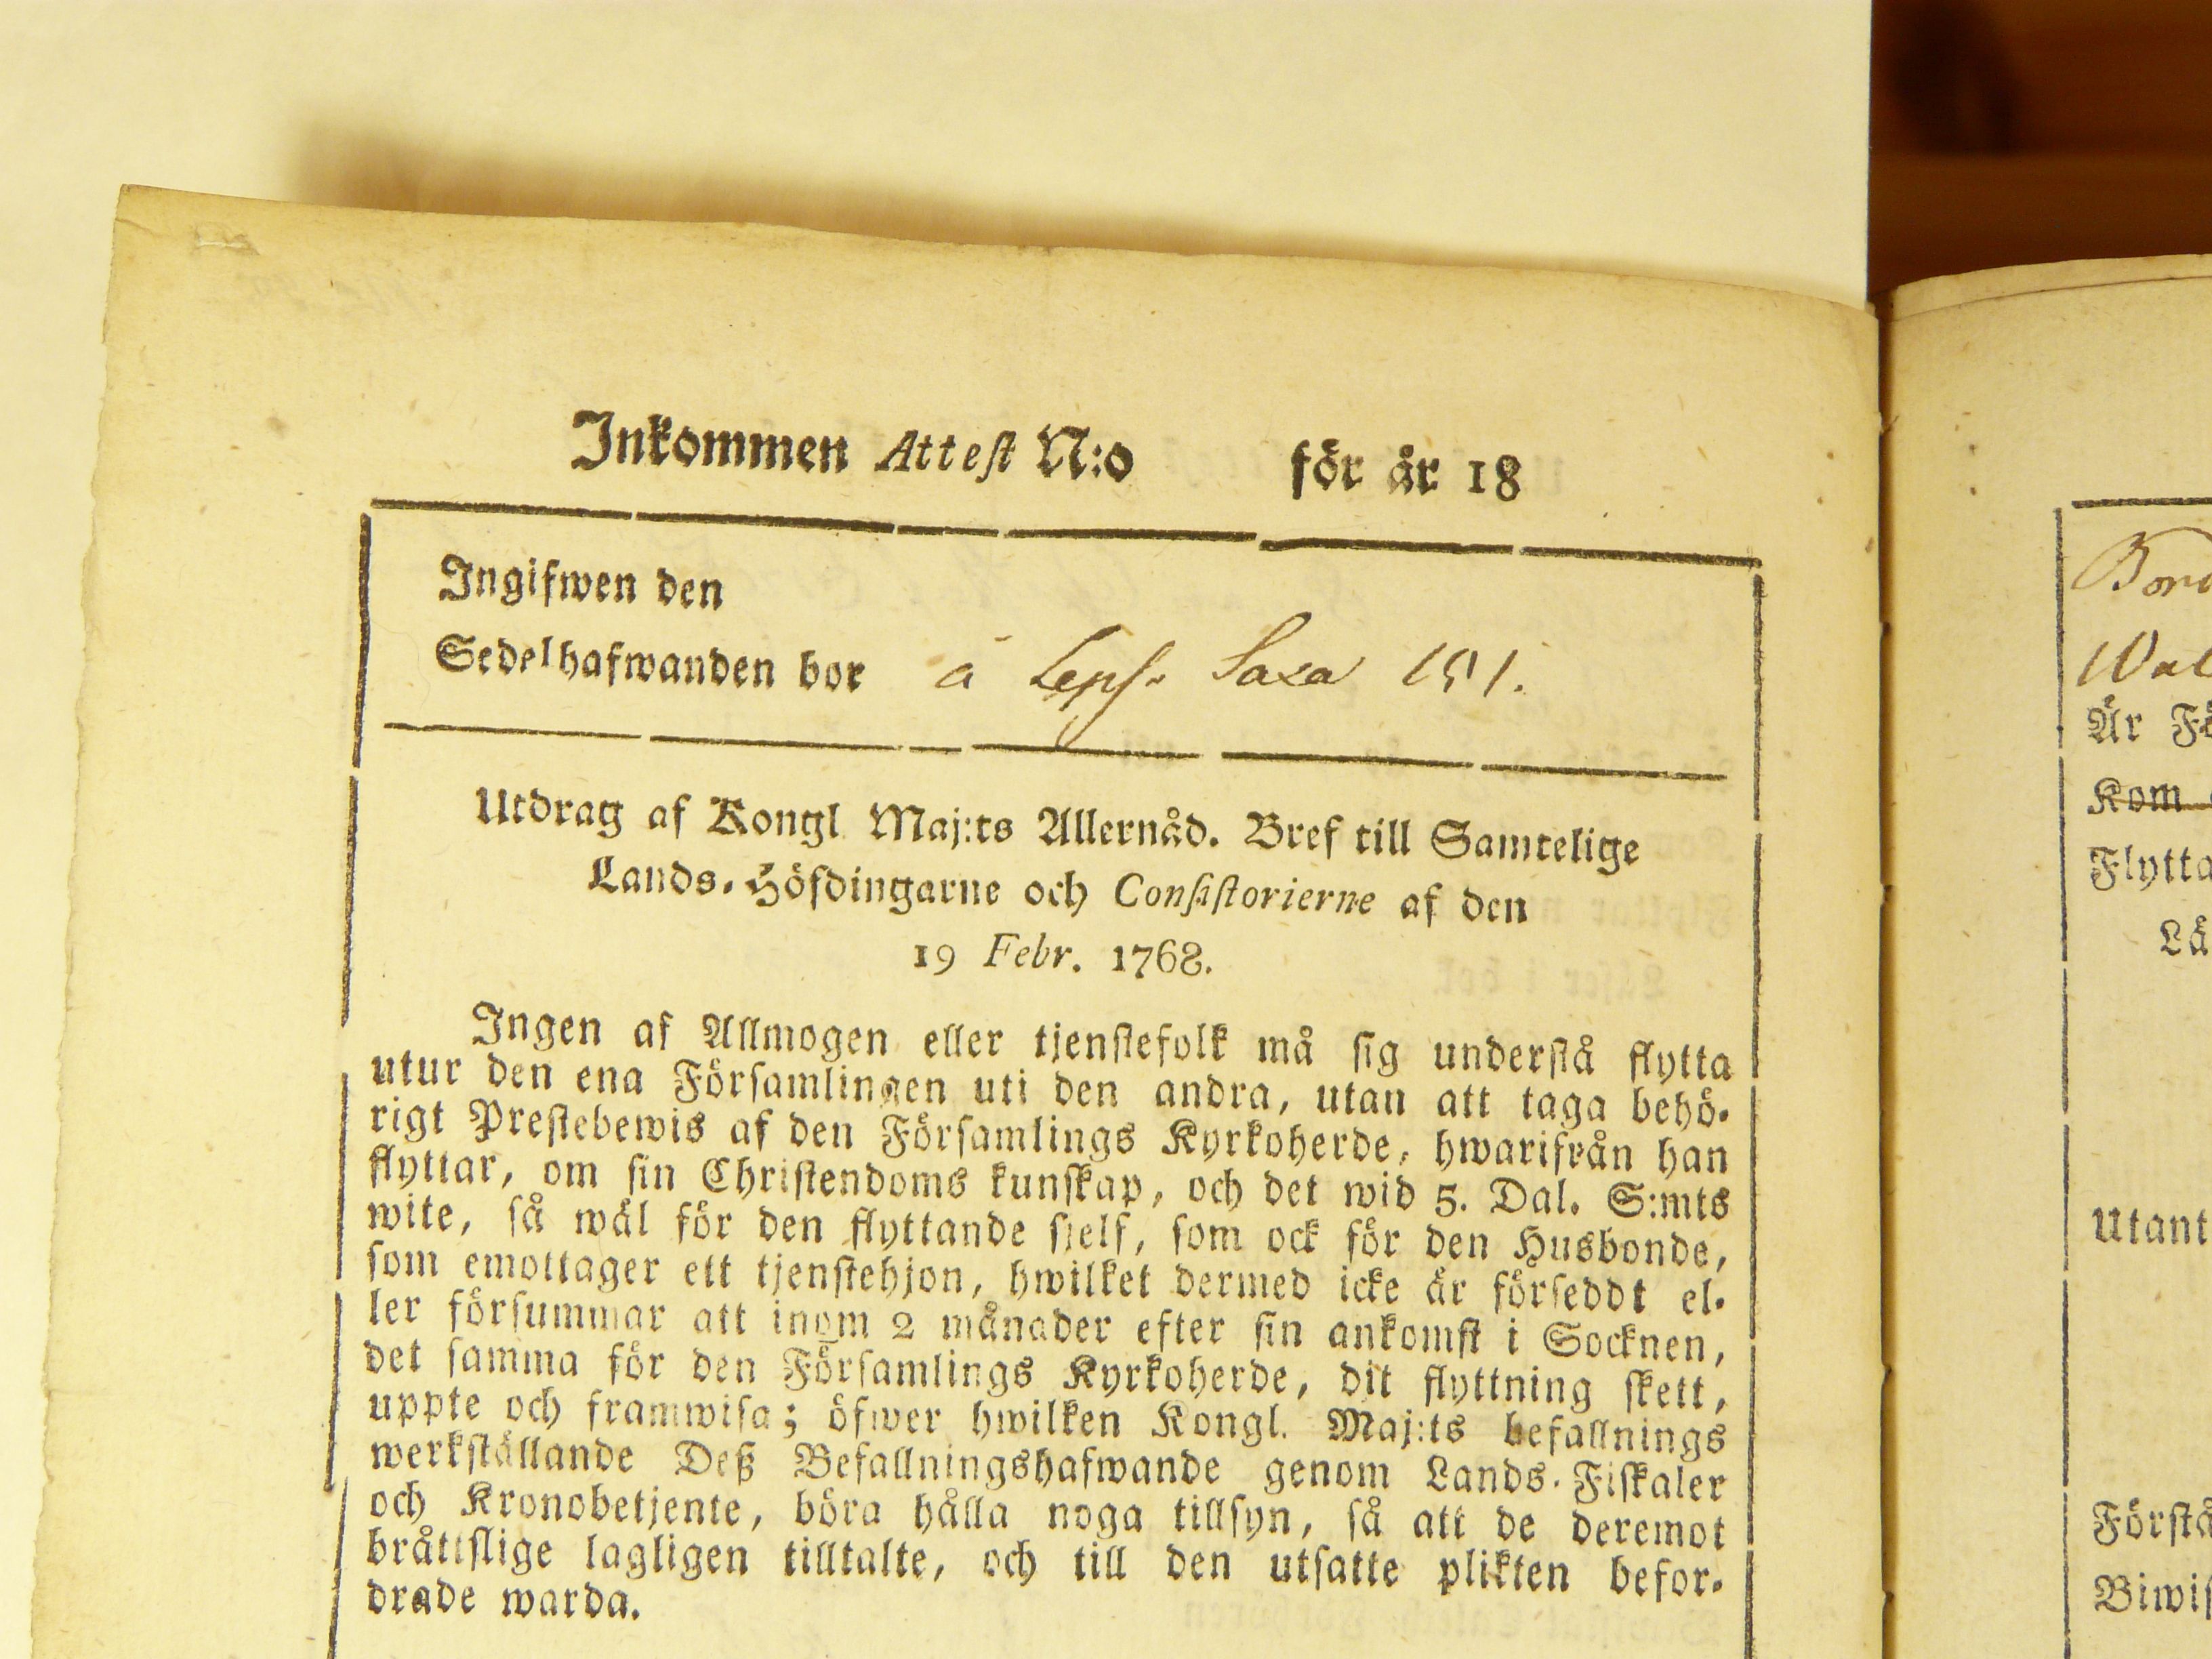 Inkommen Attest N:o för år 18
Ingifwen den
Sedelhafwanden bor å Saxa 191.
Utdrag af Kongl Maj:ts Allernåd. Bref till Samtelige
Lands-Höfdingarne och Consistorierne af den
19 Febr. 1768.
Ingen af Allmogen eller tjenstefolk må sig understå flytta
utur den ena Församlingen uti den andra, utan att taga behö-
rigt Prestebewis af den Församlings Kyrkoherde, hwarifrån han
flyttar, om sin Christendoms kunskap, och det wid 5. Dal. S:mts
wite, så wäl för den flyttande sjelf, som ock för den Husbonde,
som emottager ett tjenstehjon, hwilket dermed icke är förseddt el-
ler försummar att inom 2 månader efter sin ankomst i Socknen,
det samma för den Församlings Kyrkoherde, dit flyttning skett,
uppte och framwisa; öfwer hwilken Kongl. Maj:ts befallnings
werkställande Deß Befallningshafwande genom Lands-Fiskaler
och Kronobetjente, böra hålla noga tillsyn, så att de deremot
bråttslige lagligen tilltalte, och till den utsatte plikten befor-
drade warda.
Bord
Wal
Är Fö
Kom
Flytta
Lä
Utant
Förstå
Biwis